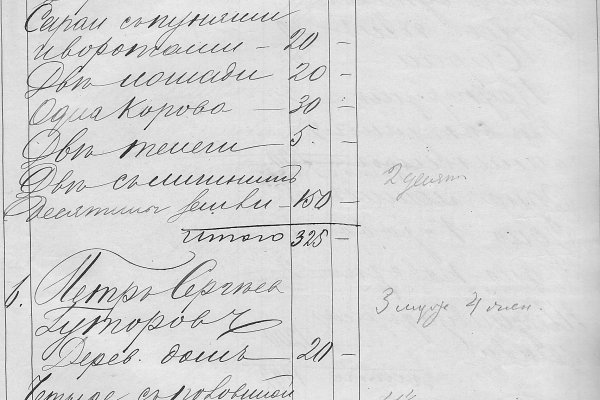 Сараи съ пуняши
и воротами — 20 —
Двѣ лошади 20 —
Одна Корова — 30 —
Двѣ телеги 5. —
Двѣ съ
десятины земли — 150 — 2 десят
Итого 325 —
6. Петръ Сергѣев
Гуторовъ 3 муж 4 жен.
Дерев. домъ — 20 —
Четыре съ половиной